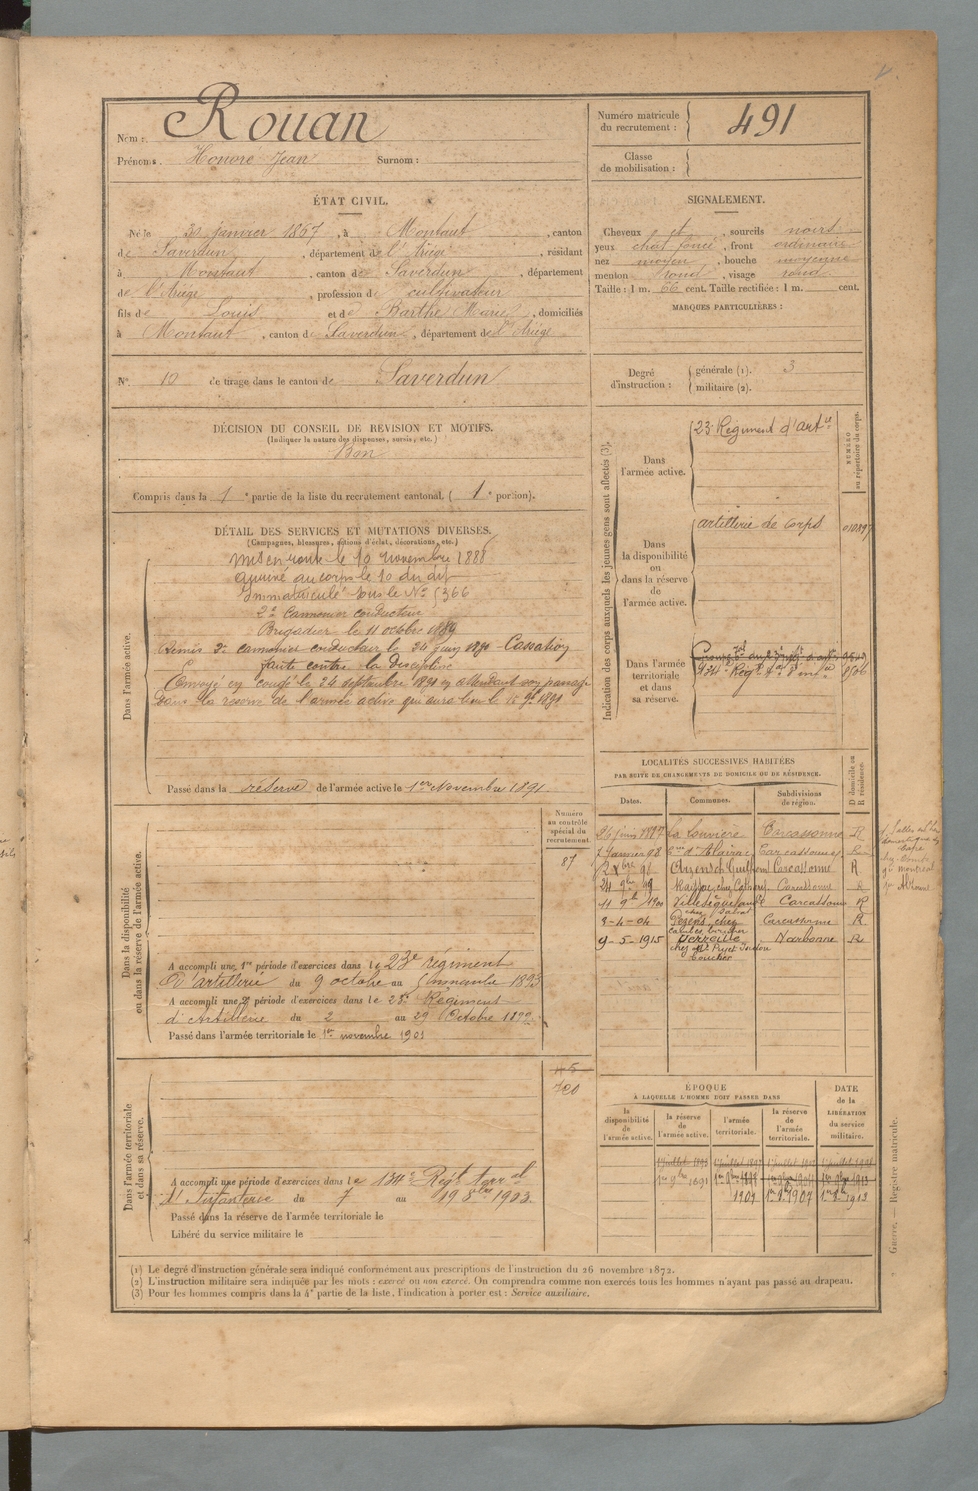 Nom : Rouan
Prénoms. Honoré Jean Surnom :
Numéro matricule du recrutement : 491
Classe de mobilisation :
ÉTAT CIVIL.
Né le janvier 1867, à Montaut, canton
de Saverdun, département de l'Ariège, résidant
à Montaut, canton de Saverdun, département
de l'Ariège, profession de cultivateur
fils de Louis et de Barthe Marie, domiciliés
à Montaut, canton de Saverdun, département de l'Ariège
N° 10 de tirage dans le canton de Saverdun
SIGNALEMENT.
Cheveux et, sourcils noirs
yeux chat. foncé, front ordinaire
nez moyen, bouche moyenne
menton rond, visage rond
Taille : 1 m. 66 cent. Taille rectifiée : 1 m. cent.
MARQUES PARTICULIÈRES :
Degré d'instruction : générale (1). 3
militaire (2).
DÉCISION DU CONSEIL DE RÉVISION ET MOTIFS.
(Indiquer la nature des dispenses, sursis, etc.)
Bon
Compris dans la 1e partie de la liste du recrutement cantonal. (1e portion).
DÉTAIL DES SERVICES ET MUTATIONS DIVERSES.
(Campagnes, blessures, actions d'éclat, décorations, etc.)
Dans l'armée active.
Mis en route le 10 novembre 1888
Arrivé au corps le 10 du dit
Immatriculé sous le N° 5366
2e Cannonier conducteur
Brigadier le 11 octobre 1889
Remis 2e cannonier conducteur le 24 juin 1890 - Cassation
faute contre la discipline
Envoyé en congé le 24 septembre 1891 en attendant son passage
dans la réserve de l'armée active qui aura lieu le 1891
Passé dans la réserve de l'armée active le 1er Novembre 1891.
Indication des corps auxquels les jeunes gens sont affectés (3).
NUMÉRO au répertoire du corps.
Dans l'armée active. 23e Régiment d'artie
Dans la disponibilité ou dans la réserve de l'armée active. artillerie de corps
Dans l'armée territoriale et dans sa réserve.
134e Régt
LOCALITÉS SUCCESSIVES HABITÉES
PAR SUITE DE CHANGEMENTS DE DOMICILE OU DE RÉSIDENCE.
Dates. Communes. Subdivisions de région. D domicile ou R résidence.
24 juin 1897 La Louvière Carcassonne R
7 Janvier 98 d'Alairac Carcassonne R
Arzens Carcassonne R
24 99 Carcassonne R
11 1900 Villesèquelande Carcassonne R
chez Sabat
3-4-04 Pezens chez Carcassonne R
9-5-1915 Narbonne R
chez Mr Puget
Dans la disponibilité ou dans la réserve de l'armée active.
Numéro au contrôle spécial du recrutement.
87
A accompli une 1re période d'exercices dans le 23e régiment
d'artillerie du 9 octobre au 5 novembre 1893
A accompli une 2e période d'exercices dans le 23e Régiment
d'Artillerie du 2 au 29 Octobre 1899
Passé dans l'armée territoriale le 1er novembre 1901
Dans l'armée territoriale et dans sa réserve.
A accompli une période d'exercices dans le 134e Régt terral
d'Infanterie du 7 au 19 8bre 1903.
Passé dans la réserve de l'armée territoriale le
Libéré du service militaire le
ÉPOQUE
À LAQUELLE L'HOMME DOIT PASSER DANS
la disponibilité de l'armée active. la réserve de l'armée active. l'armée territoriale. la réserve de l'armée territoriale.
DATE de la LIBÉRATION du service militaire.
1er 9bre 1891
1901 1er 9bre 1907 1er 9bre 1913
Guerre. — Registre matricule.
(1) Le degré d'instruction générale sera indiqué conformément aux prescriptions de l'instruction du 26 novembre 1872.
(2) L'instruction militaire sera indiquée par les mots : exercé ou non exercé. On comprendra comme non exercés tous les hommes n'ayant pas passé au drapeau.
(3) Pour les hommes compris dans la 4e partie de la liste, l'indication à porter est : Service auxiliaire.